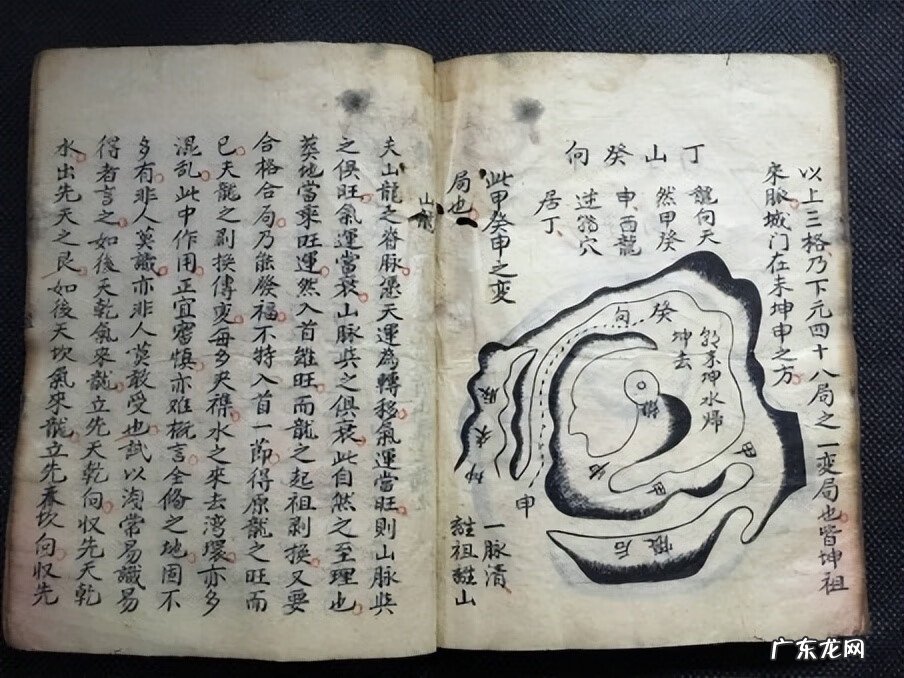 以上三格乃下元四十八局之一变局也皆坤祖
来脉城门在未坤申之方
丁山癸向
龍向天
然甲癸
申酉龍
迷瑤穴
居丁
癸
向
坤去
坤水帰
申
后殷
一脉清
此甲癸申之变
局也
山龍
夫山龍之脊脉憑天運為轉移氣運當旺則山脉與
之俱旺氣運當衰山脉與之俱衰此自然之至理也
葵地當乘旺運然入首雖旺而龍之起祖剥換又要
合格合局乃能發福不特入首一節得原龍之旺而
已天龍之剥换傳变每多夹襍水之來去湾環亦多
混乱此中作用正宜審慎亦难概言全俻之地固不
多有非人莫識亦非人莫敢受也試以淘常易識易
得者言之如後天乾氣來龍立先天乾向収先天乾
水出先天之艮如後天坎氣來龍立先天坎向収先
广东龙网